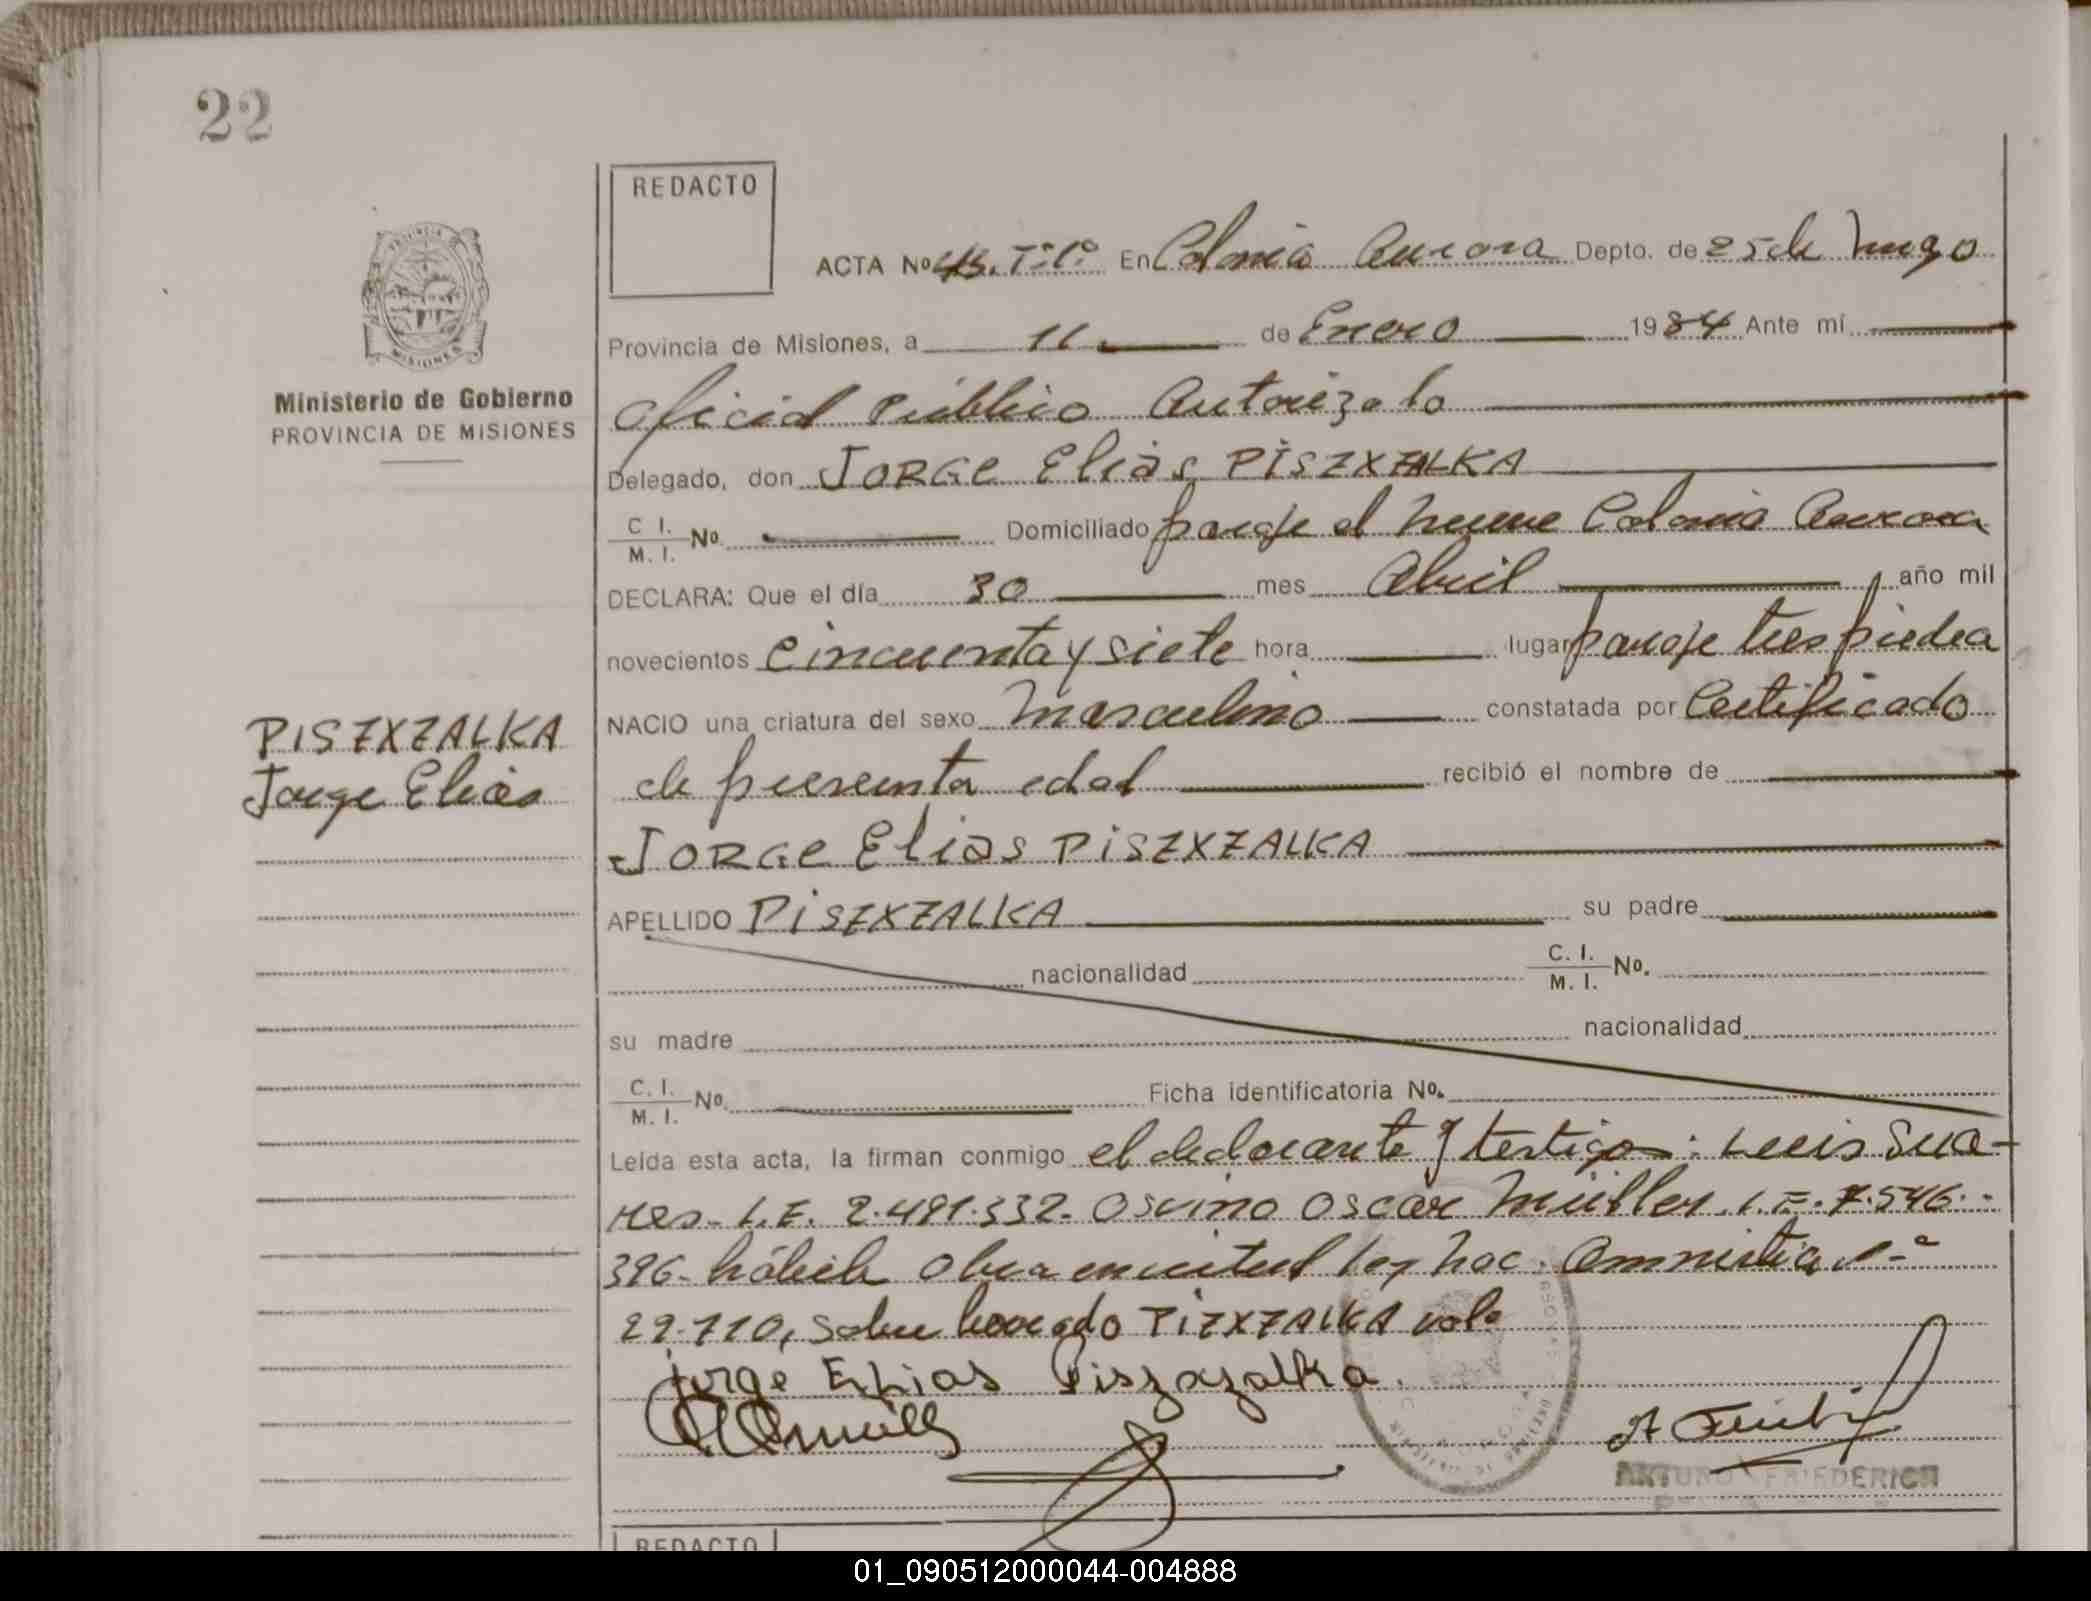 22
REDACTO
ACTA Nº 43. Tº 1º En Colonia Aurora Depto. de 25 de Mayo
Provincia de Misiones, a 11 de Enero 1984 Ante mí
PROVINCIA DE
MISIONES
Ministerio de Gobierno
PROVINCIA DE MISIONES
oficial Público Autorizado
Delegado, don JORGE Eliás PISZXZALKA
C. I. M. I. Nº Domiciliado paraje el Colonia Aurora
DECLARA: Que el día 30 mes Abril año mil
novecientos cincuenta y siete hora lugar paraje tres piedra
NACIO una criatura del sexo masculino constatada por Certificado
de presunta edad recibió el nombre de
PISZXZALKA
Jorge Eliás
JORGE Elias PISZXZALKA
APELLIDO PISZXZALKA su padre
nacionalidad C. I. M. I. Nº.
su madre nacionalidad
C. I. M. I. Nº Ficha identificatoria Nº.
Leída esta acta, la firman conmigo el declarante y testigos: Luis Sua-
res- L.E. 2.491.332. Osvino Oscar Müller. L.E. 7.546.-
396- hábile Obra en virtud ley nac. Amnistia nª
22.710, sobre borrado PIZXZALKA vale
Jorge Elias Piszxzalka.
ARTURO FRIEDERICH
REDACTO
01_090512000044-004888